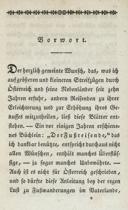 Vorwort.
Der herzlich gemeinte Wunsch, das, was ich
auf größeren und kleineren Streifzügen durch
Österreich und seine Nebenländer seit zehn
Jahren erfuhr, andern Reisenden zu ihrer
Erleichterung und zur Erhöhung ihres Ge-
nusses mitzutheilen, ließ diese Blätter ent-
stehen. — Ein vor einigen Jahren erschiene-
nes Büchlein: „Der Fußreisende“, hat
das Unternehmen durchaus entsprochen nicht
allen Wünschen, enthält manches Überflüs-
sige, — ja sogar manche Unwahrheit. —
Auch ist es nicht für Österreich geschrieben,
und so dürfte diese Anleitung bey der regen
Lust zu Fußwanderungen im Vaterlande,